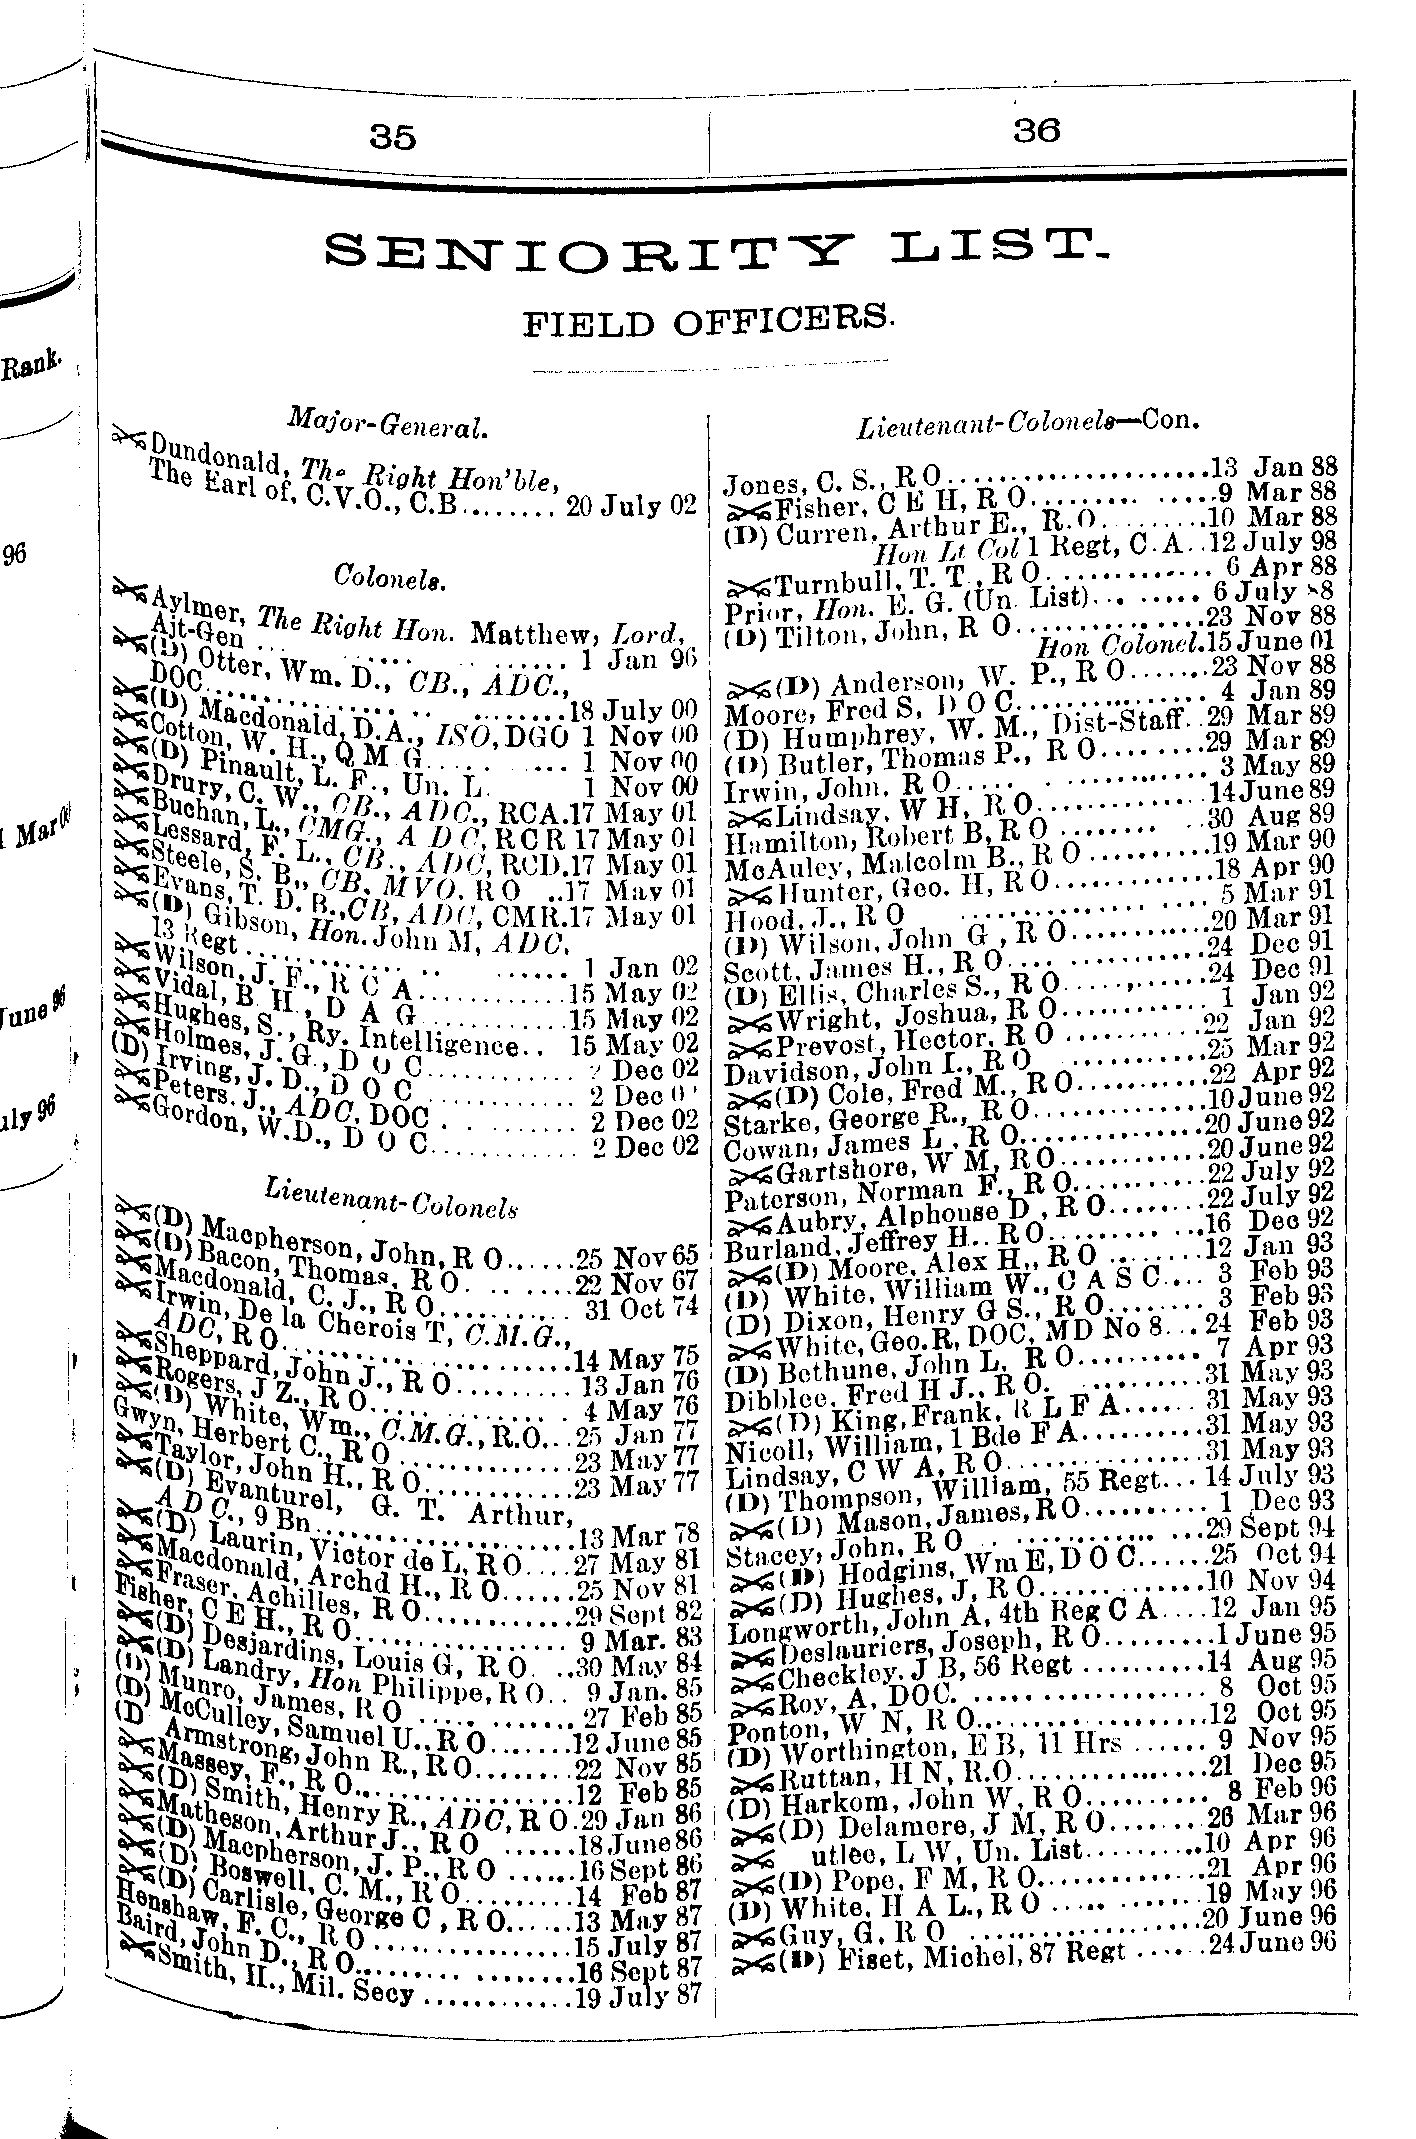 35
36
SENIORITY LIST.
FIELD OFFICERS.
Major-General.
Dundonald, The Right Hon'ble,
The Earl of, C.V.O., C.B........ 20 July 02
Colonels.
Aylmer, The Right Hon. Matthew, Lord,
Ajt-Gen ... ..... .. ...... 1 Jan 96
(D) Otter, Wm. D., CB., ADC.,
DOC.............. .. ........18 July 00
(D) Macdonald, D.A., ISO, DGO 1 Nov 00
Cotton, W. H., Q M G..... ... 1 Nov 00
(D) Pinault, L. F., Un. L. 1 Nov 00
Drury, C. W., CB., ADC., RCA.17 May 01
Buchan, L., CMG., A D C, RCR 17 May 01
Lessard, F. L., CB., ADC, RCD.17 May 01
Steele, S. B., CB, MVO. RO ..17 May 01
Evans, T. D. B., CB, ADC, CMR.17 May 01
(D) Gibson, Hon. John M, ADC,
13 Regt .............. .. ...... 1 Jan 02
Wilson, J. F., R C A............15 May 02
Vidal, B H, D A G............15 May 02
Hughes, S., Ry. Intelligence.. 15 May 02
Holmes, J. G., D O C............ 2 Dec 02
(D) Irving, J. D., D O C ............ 2 Dec
Peters. J., ADC, DOC . ......... 2 Dec 02
Gordon, W.D., D O C............ 2 Dec 02
Lieutenant-Colonels
(D) Macpherson, John, R O......25 Nov 65
(D) Bacon, Thomas, R O. .. ......22 Nov 67
Macdonald, C. J., R O.......... 31 Oct 74
Irwin, De la Cherois T, C.M.G.,
ADC, R O........................14 May 75
Sheppard, John J., R O......... 13 Jan 76
Rogers, J Z., R O............... 4 May 76
(D) White, Wm., C.M.G., R.O...25 Jan 77
Gwyn, Herbert C., R O ..............23 May 77
Taylor, John H., R O............23 May 77
(D) Evanturel, G. T. Arthur,
ADC., 9 Bn......................13 Mar 78
(D) Laurin, Victor de L, R O....27 May 81
Macdonald, Archd H., R O......25 Nov 81
Fraser, Achilles, R O............29 Sept 82
Fisher, C E H., R O................ 9 Mar. 83
(D) Desjardins, Louis G, R O. ..30 May 84
(D) Landry, Hon Philippe, R O.. 9 Jan. 85
(D) Munro, James, R O ..... ....... 27 Feb 85
(D) McCulley, Samuel U., R O.......12 June 85
(D Armstrong, John R., R O........22 Nov 85
Massey, F., R O..................12 Feb 85
(D) Smith, Henry R., ADC, R O.29 Jan 86
Matheson, Arthur J., R O ......18 June 86
(D) Macpherson, J. P., R O ......16 Sept 86
(D) Boswell, C. M., R O........14 Feb 87
(D) Carlisle, George C, R O......13 May 87
Henshaw, F. C., R O ................15 July 87
Baird, John D., R O......... .........16 Sept 87
Smith, H., Mil. Secy ............19 July 87
Lieutenant-Colonels—Con.
Jones, C. S., R O......................13 Jan 88
Fisher, C E H, R O......... ......9 Mar 88
(D) Curren, Arthur E., R.O.........10 Mar 88
Hon Lt Col 1 Regt, C.A..12 July 98
Turnbull, T. T., R O. ............. 6 Apr 88
Prior, Hon. E. G. (Un. List)... ..... 6 July 88
(D) Tilton, John, R O................23 Nov 88
Hon Colonel.15 June 01
(D) Anderson, W. P., R O.......23 Nov 88
Moore, Fred S, D O C............... 4 Jan 89
(D) Humphrey, W. M., Dist-Staff..29 Mar 89
(D) Butler, Thomas P., R O........29 Mar 89
Irwin, John, R O..... . ........... 3 May 89
Lindsay, W H, R O..............14 June 89
Hamilton, Robert B, R O ........ ..30 Aug 89
McAuley, Malcolm B., R O...........19 Mar 90
Hunter, Geo. H, R O.............18 Apr 90
Hood, J., R O .................... 5 Mar 91
(D) Wilson, John G, R O............20 Mar 91
Scott, James H., R O.... ............24 Dec 91
(D) Ellis, Charles S., R O............24 Dec 91
Wright, Joshua, R O............ 1 Jan 92
Prevost, Hector, R O ...........22 Jan 92
Davidson, John I., R O ............25 Mar 92
(D) Cole, Fred M., R O..........22 Apr 92
Starke, George R., R O...............10 June 92
Cowan, James L, R O................20 June 92
Gartshore, W M, R O............20 June 92
Paterson, Norman F., R O..........22 July 92
Aubry, Alphouse D, R O........22 July 92
Burland, Jeffrey H., R O............16 Dec 92
(D) Moore, Alex H., R O ........12 Jan 93
(D) White, William W., C A S C.... 3 Feb 93
(D) Dixon, Henry G S., R O........ 3 Feb 93
White, Geo. R, DOC, MD No 8...24 Feb 93
(D) Bethune, John L, R O.......... 7 Apr 93
Dibblee, Fred H J., R O. ..........31 May 93
(D) King, Frank, R L F A......31 May 93
Nicoll, William, 1 Bde F A..........31 May 93
Lindsay, C W A, R O................31 May 93
(D) Thompson, William, 55 Regt...14 July 93
(D) Mason, James, R O.......... 1 Dec 93
Stacey, John, R O . ..............29 Sept 94
(D) Hodgins, Wm E, D O C......25 Oct 94
(D) Hughes, J, R O..............10 Nov 94
Longworth, John A, 4th Reg C A....12 Jan 95
Deslauriers, Joseph, R O.........1 June 95
Checkley, J B, 56 Regt ..........14 Aug 95
Roy, A, DOC. .................... 8 Oct 95
Ponton, W N, R O....................12 Oct 95
(D) Worthington, E B, 11 Hrs ...... 9 Nov 95
Ruttan, H N, R.O................21 Dec 95
(D) Harkom, John W, R O.......... 8 Feb 96
(D) Delamere, J M, R O........26 Mar 96
utlee, L W, Un. List..........10 Apr 96
(D) Pope, F M, R O.............21 Apr 96
(D) White, H A L., R O .............19 May 96
Guy, G, R O ...................20 June 96
(D) Fiset, Michel, 87 Regt ......24 June 96
Rank.
96
Mar
June 96
uly 96